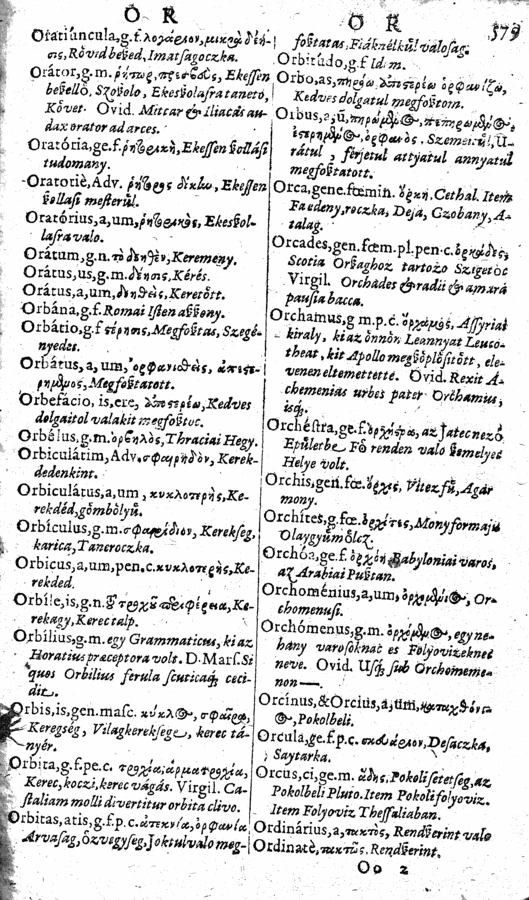 O R
O R
579
Oratiuncula, g.f. λογάριον,
sis, Rövid beßed, Imatsagoczka.
Orátor, g.m. ῥήτωρ, Ekessen
beßellö, Szoßolo, Ekesßolasra taneto,
Kößet. Ovid. Mittor & Iliacas au-
dax orator ad arces.
Oratória, ge.f. ῥητορικὴ, Ekessen ßollási
tudomany.
Oratoriè, Adv. ῥήτορος δίκην, Ekessen
ßollasi mesterül.
Oratórius, a, um, ῥητορικὸς, Ekesßol-
lasra valo.
Orátum, g.n. τὸ δεηθὲν, Keremeny.
Orátus, us, g.m. δέησις, Kérés.
Orátus, a, um, δεηθεὶς, Keretött.
Orbána, g.f. Romai Isten aßßony.
Orbátio, g.f. στέρησις, Megfoßtas, Szegé-
nyedes.
Orbátus, a, um, ὀρφανισθεὶς,
Megfoßtatott.
Orbefácio, is, ere, ἀποστερέω, Kedves
dolgaitol valakit megfoßtoc.
Orbélus, g.m. ὀρβηλὸς, Thraciai Hegy.
Orbiculátim, Adv. σφαιρηδὸν, Kerek-
dedenkint.
Orbiculátus, a, um, κυκλοτερὴς, Ke-
rekdéd, gömbölyű.
Orbículus, g.m. σφαιρίδιον, Kerekseg,
karica, Taneroczka.
Orbicus, a, um, pen.c. κυκλοτερὴς, Ke-
rekded.
Orbíle, is, g.n. Ke-
rekagy, Kerec talp.
Orbílius, g.m. egy Grammaticus, ki az
Horatius praeceptora volt. D. Mars. Si
quos Orbilius ferula scuticaq; ceci-
dit.
Orbis, is, gen. masc. κύκλος, σφαῖρα,
Keregség, Vilagkereksege, kerec tá-
nyér.
Orbita, g.f. pe.c. τροχιὰ, ἁρματροχιὰ,
Kerec, koczi, kerec vágás. Virgil. Ca-
staliam molli divertitur orbita clivo.
Orbitas, atis, g.f. p.c. ἀτεκνία, ὀρφανία,
Arvasag, özvegyseg, Joktul valo meg-
foßtatas, Fiáknélkül valosag.
Orbitúdo, g.f. Idem.
Orbo, as, πηρόω, ἀποστερέω, ὀρφανίζω,
Kedves dolgatul megfoßtom.
Orbus, a, ũ,
ὀρφανὸς. U-
rátul, ferjetul attyatul annyatul
megfoßtatott.
Orca, gene. fœmin. ὄρκη. Cethal. Item
Fa edeny, roczka, Deja, Czobany, A-
talag.
Orcades, gen. fœm. pl. pen. c. ὀρκάδες,
Scotia Orßaghoz tartozo Szigetöc
Virgil. Orchades & radii & amara
pausia bacca.
Orchamus, g m. p.c. ὄρχαμος, Assyriai
kiraly, ki az önnön Leannyat Leuco-
theat, kit Apollo megßöplösitött, ele-
venen eltemettette. Ovid. Rexit A-
chemenias urbes pater Orchamus;
isq;.
Orchéstra, ge.f. ὀρχήστρα, az Jatec nezö
Epületbe Fö renden valo ßemelyec
Helye volt.
Orchis, gen. fœ. ὄρχις, Vitez fű, Agar
mony.
Orchítes, g.fœ. ὀρχίτες, Mony formaju
Olaygyümölcz.
Orchóa, ge.f. ὀρχόη Babyloniai varos,
az Arabiai Pußtan.
Orchoménius, a, um, ὀρχομένιος, Or-
chomenusi.
Orchómenus, g.m. ὀρχόμενος, egy ne-
hány varosoknac es Folyovizeknec
neve. Ovid. Usq; sub Orchomeme-
non —.
Orcínus, & Orcíus, a, um,
Pokolbeli.
Orcula, ge.f. p.c. Desaczka,
Saytarka.
Orcus, ci, ge.m. ᾅδης, Pokoli setetseg, az
Pokolbeli Pluto. Item Pokoli folyoviz.
Item Folyoviz Thessaliaban.
Ordinárius, a, τακτὸς, Rendßerint valo
Ordinatè, τακτῶς. Rendßerint.
Oo 2